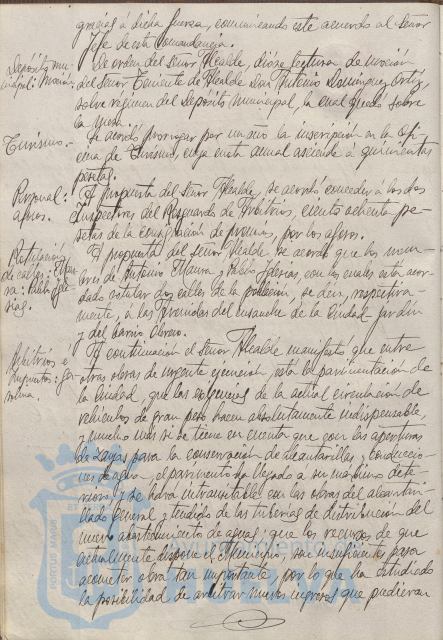 gracias á dicha fuerza, comunicando este acuerdo al Señor
Jefe de esta Comandancia.
Depósito mu-
nicipal: Moción
De orden del Señor Alcalde, dióse lectura de moción
del Señor Teniente de Alcalde Don Antonio Domínguez Ortiz,
sobre régimen del depósito municipal, la cual quedó sobre
la mesa.
Turismo.-
Se acordó prorrogar por un año la inscripción en la ofi-
cina de Turismo, cuya cuota anual asciende á quinientas
pesetas.
Personal:
aforos.
A propuesta del Señor Alcalde, se acordó conceder á los dos
Inspectores del Resguardo de Arbitrios, ciento ochenta pe-
setas de la consignación de premios, por los aforos.
Rotulación
de calles: Mau-
ra: Pablo Igle-
sias.
A propuesta del Señor Alcalde se acordó que los nom-
bres de Antonio Maura y Pablo Iglesias con los cuales está acor-
dado rotular dos calles de la población, se den, respectiva-
mente, a las Avenidas del ensanche de la Ciudad Jardín
y del barrio Obrero.
Arbitrios é
Impuestos: Ga-
solina.
A continuación el Señor Alcalde manifestó que entre
otras obras de urgente ejecución, está la pavimentación de
la Ciudad, que las exigencias de la actual circulación de
vehículos de gran peso hacen absolutamente indispensable,
y mucho más si se tiene en cuenta que con las aperturas
de zanjas para la conservación de alcantarillas y conduccio-
nes de agua, el pavimento ha llegado a su máximo dete-
rioro, y se hará intransitable con las obras del alcantari-
llado general y tendido de las tuberías de distribución del
nuevo abastecimiento de aguas; que los recursos de que
actualmente dispone el Municipio, son insuficientes para
acometer obra tan importante, por lo que ha estudiado
la posibilidad de arbitrar nuevos ingresos que pudieran
PORTUS MARIS
Ayuntamiento
HUELVA